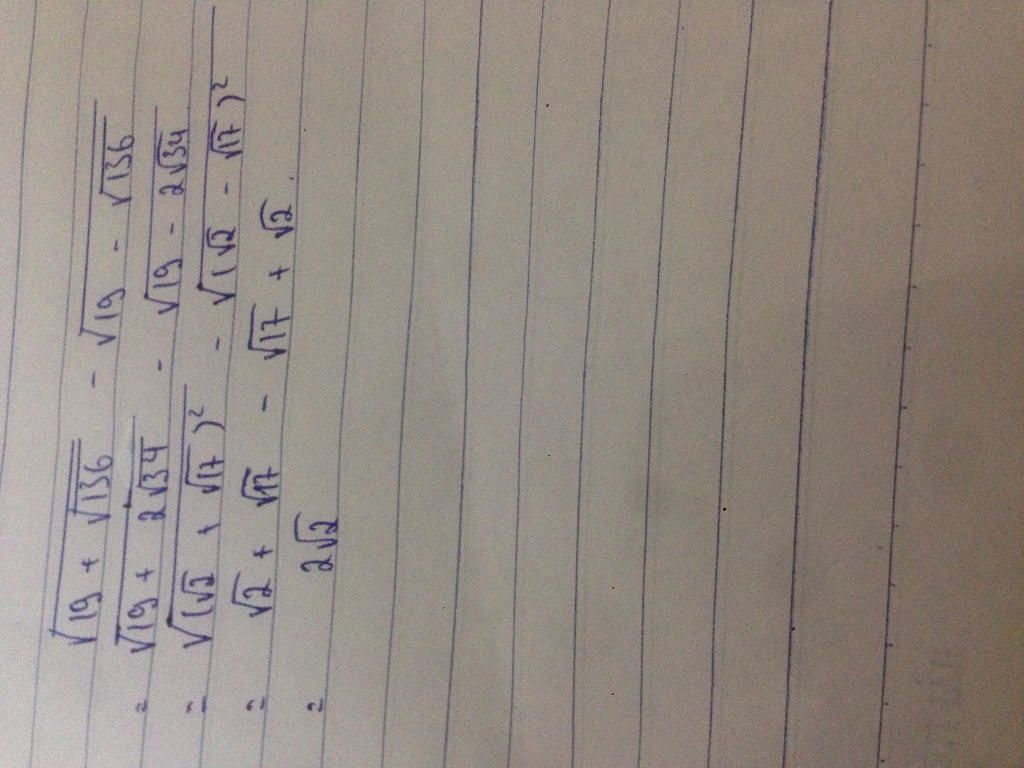 √(19 + √136) - √(19 - √136)
= √(19 + 2√34) - √(19 - 2√34)
= √((√2 + √17)²) - √((√2 - √17)²)
= √2 + √17 - √17 + √2
= 2√2